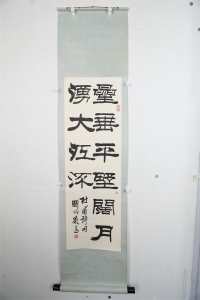 曐垂平壄闊月
湧大江流
杜甫詩句